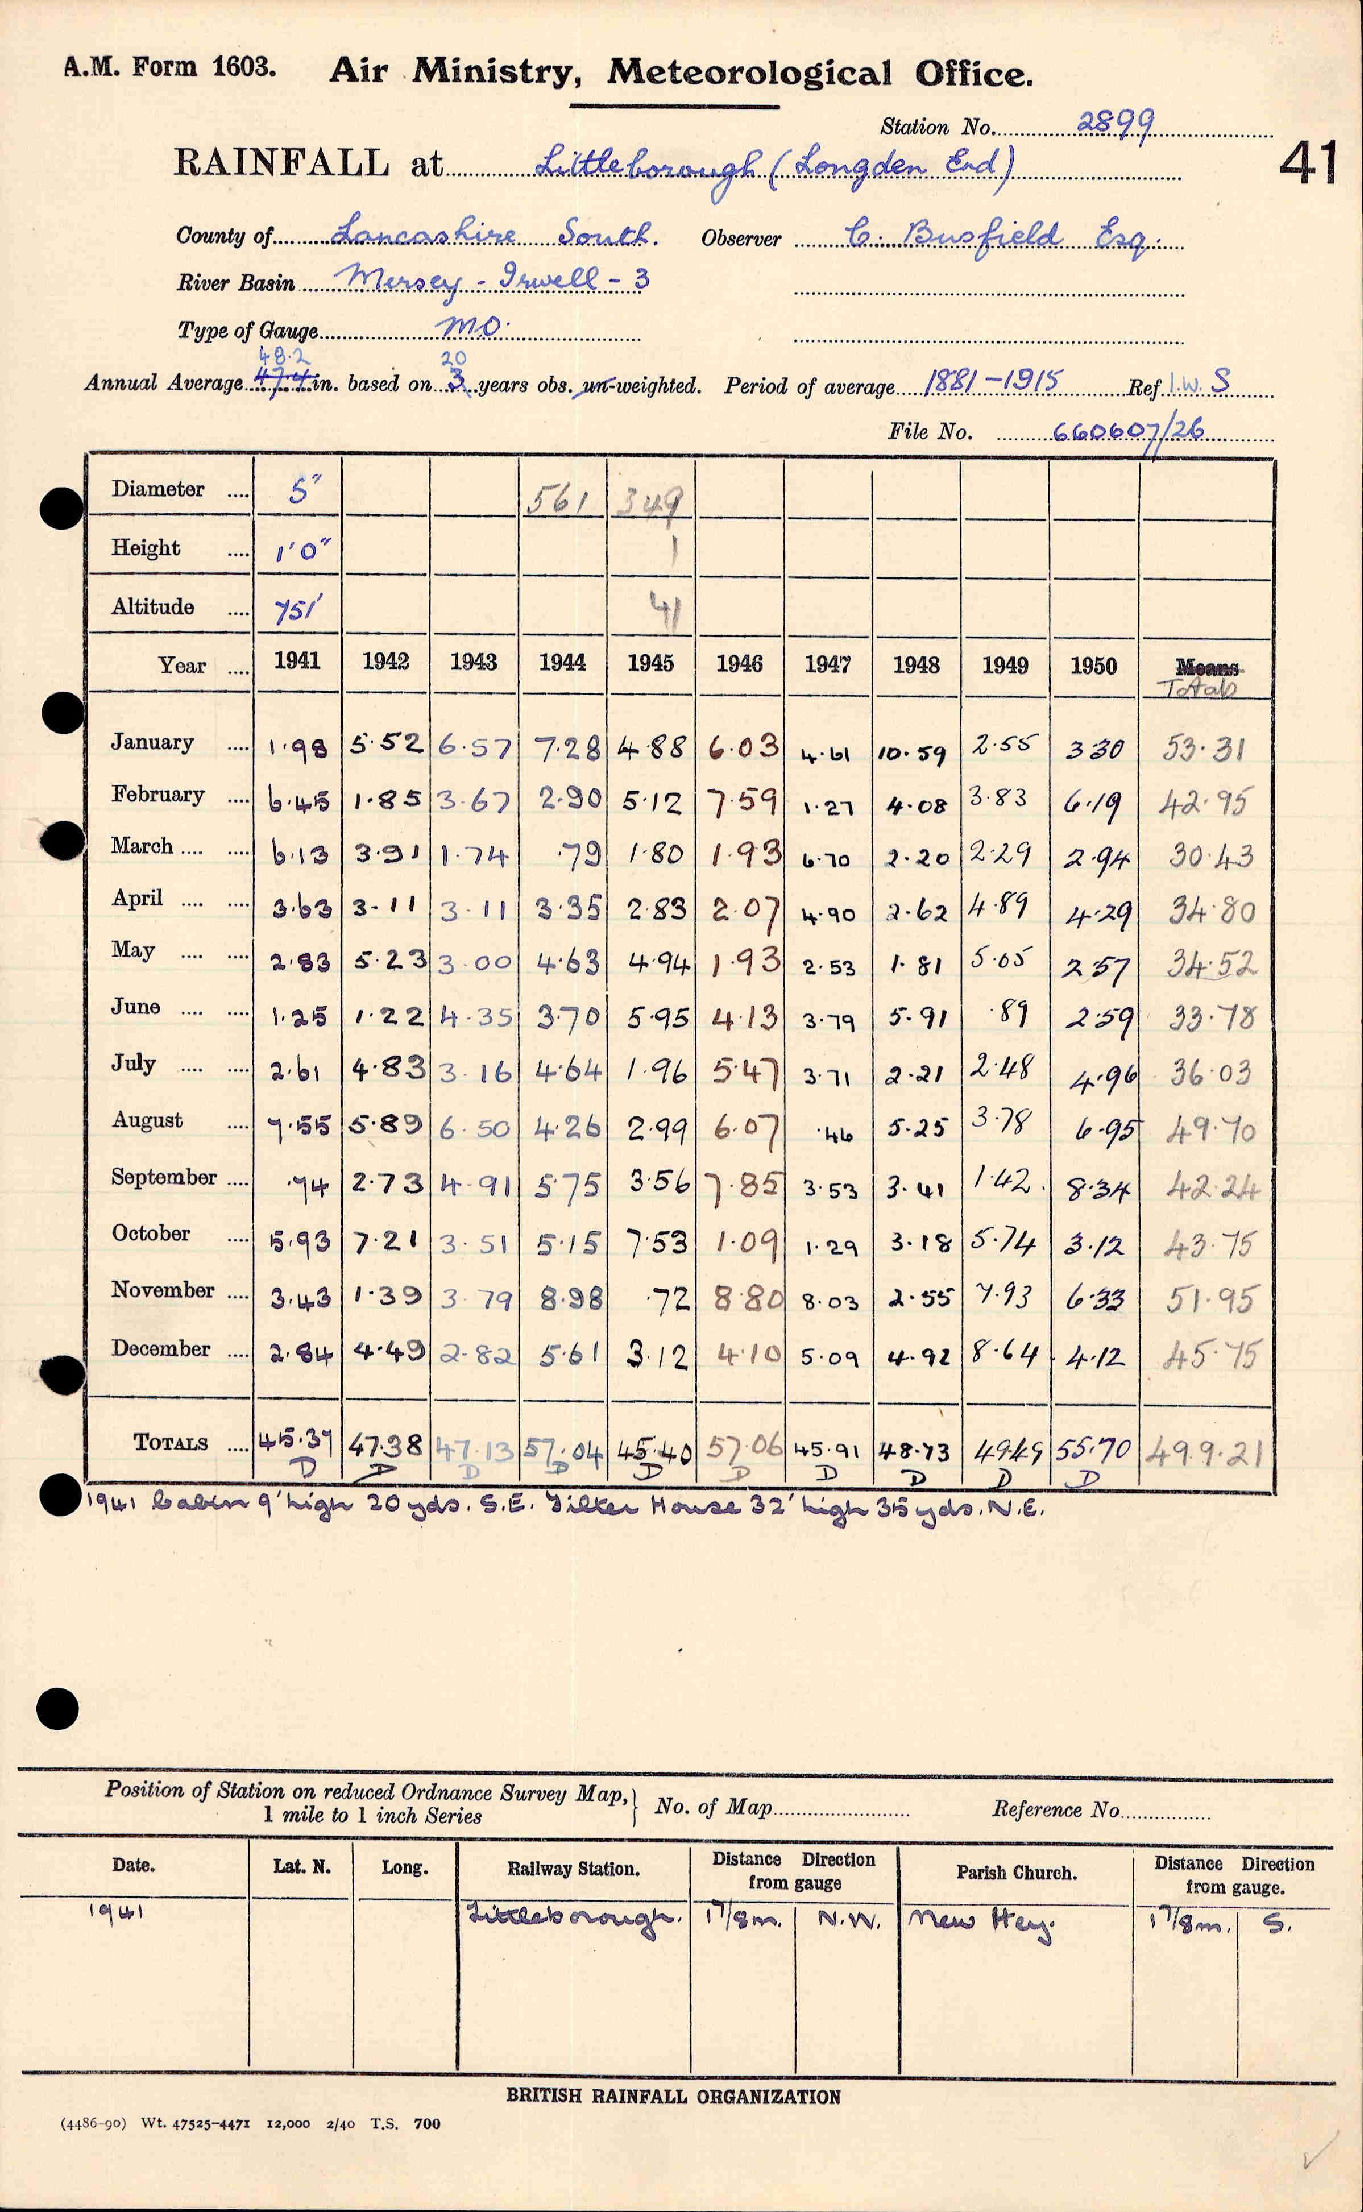 A.M. Form 1603. Air Ministry, Meteorological Office.
Station No. 2899
41
RAINFALL at Littleborough (Longden End)
County of Lancashire South. Observer C. Busfield Esq.
River Basin Mersey - Irwell - 3
Type of Gauge MO.
48.2 20
Annual Average 47.4 in. based on 3 years obs. un-weighted. Period of average 1881-1915 Ref I.W.S
File No. 660607/26
Diameter .... 5" 561 349
Height .... 1'0" 1
Altitude .... 751' 41
Year .... 1941 1942 1943 1944 1945 1946 1947 1948 1949 1950 Means
Totals
January .... 1.98 5.52 6.57 7.28 4.88 6.03 4.61 10.59 2.55 3.30 53.31
February .... 6.45 1.85 3.67 2.90 5.12 7.59 1.27 4.08 3.83 6.19 42.95
March .... .... 6.13 3.91 1.74 .79 1.80 1.93 6.70 2.20 2.29 2.94 30.43
April .... .... 3.63 3.11 3.11 3.35 2.83 2.07 4.90 2.62 4.89 4.29 34.80
May .... .... 2.83 5.23 3.00 4.63 4.94 1.93 2.53 1.81 5.05 2.57 34.52
June .... .... 1.25 1.22 4.35 3.70 5.95 4.13 3.79 5.91 .89 2.59 33.78
July .... .... 2.61 4.83 3.16 4.64 1.96 5.47 3.71 2.21 2.48 4.96 36.03
August .... 7.55 5.89 6.50 4.26 2.99 6.07 .46 5.25 3.78 6.95 49.70
September .... .74 2.73 4.91 5.75 3.56 7.85 3.53 3.41 1.42 8.34 42.24
October .... 5.93 7.21 3.51 5.15 7.53 1.09 1.29 3.18 5.74 3.12 43.75
November .... 3.43 1.39 3.79 8.98 .72 8.80 8.03 2.55 7.93 6.33 51.95
December .... 2.84 4.49 2.82 5.61 3.12 4.10 5.09 4.92 8.64 4.12 45.75
TOTALS .... 45.37 47.38 47.13 57.04 45.40 57.06 45.91 48.73 49.49 55.70 499.21
D D D D D D D D D D
1941 Cabin 9' high 20 yds. S.E. Filter House 32' high 35 yds. N.E.
Position of Station on reduced Ordnance Survey Map, 1 mile to 1 inch Series } No. of Map Reference No.
Date. Lat. N. Long. Railway Station. Distance Direction from gauge Parish Church. Distance Direction from gauge.
1941 Littleborough. 1 7/8 m. N.W. New Hey. 1 7/8 m. S.
BRITISH RAINFALL ORGANIZATION
(4486-90) Wt. 47525-4471 12,000 2/40 T.S. 700